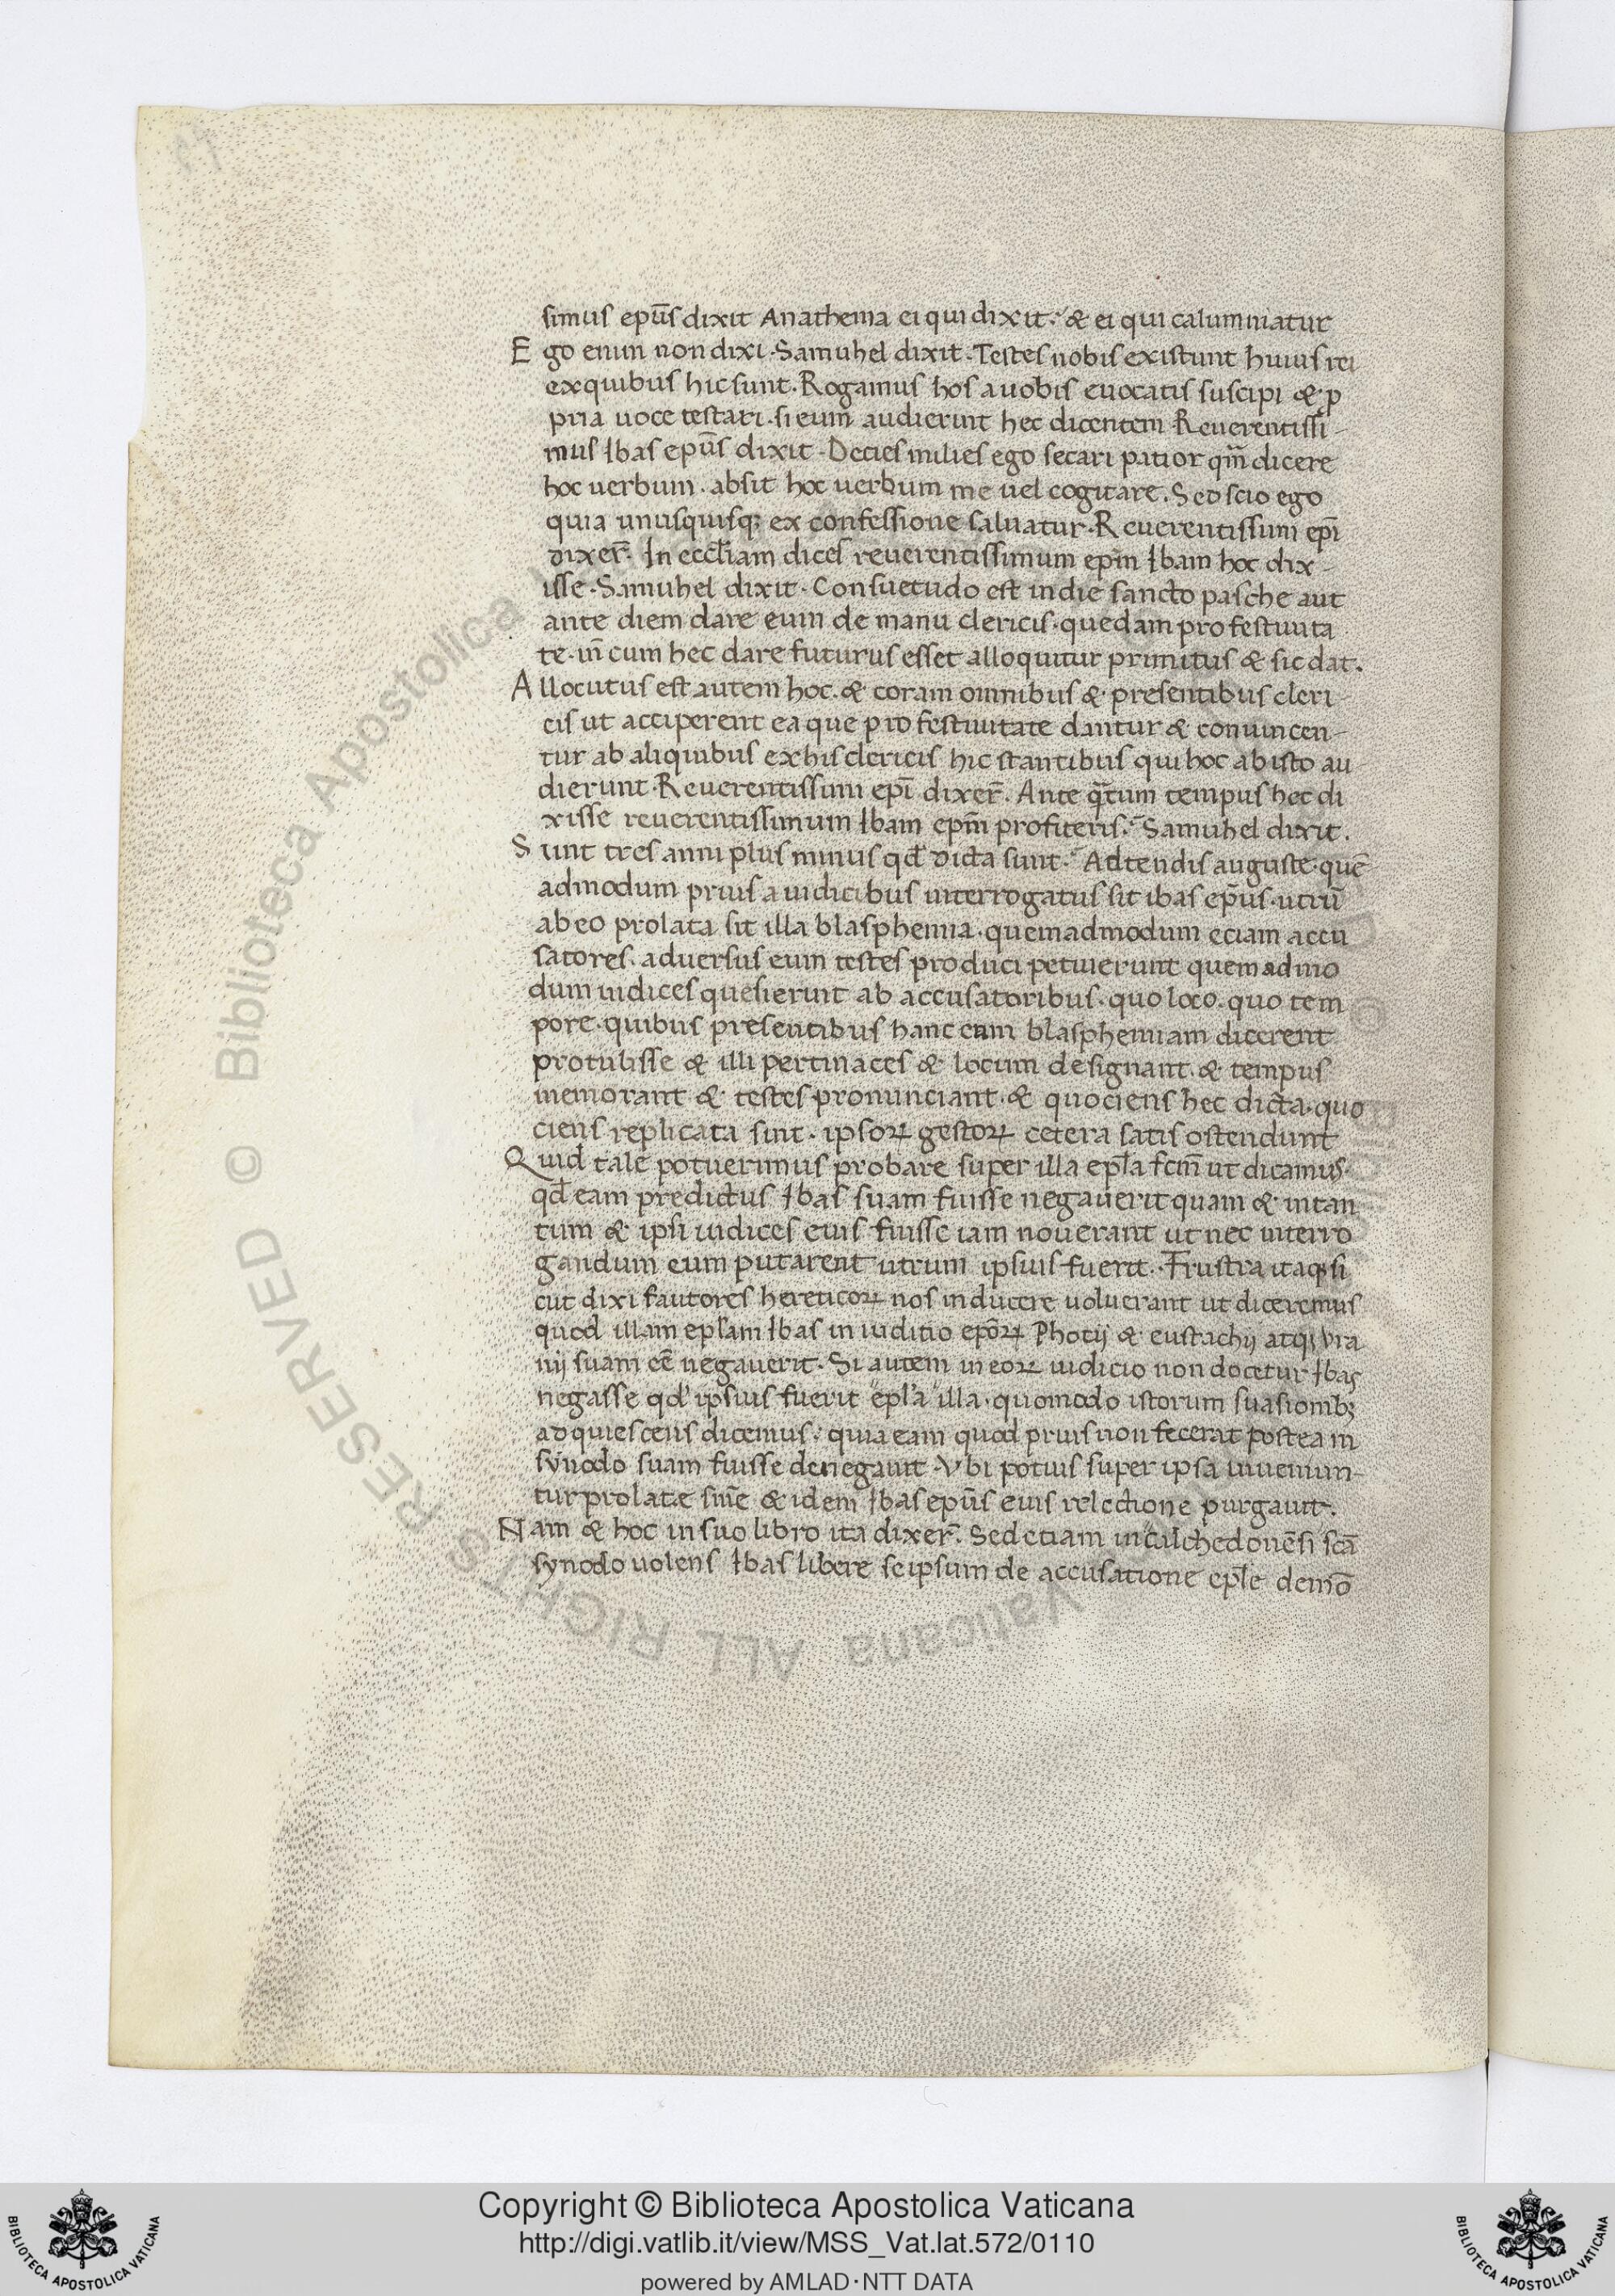 simus ep̄us dixit Anathema ei qui dixit. & ei qui calumniatur
Ego enim non dixi. Samuhel dixit. Testes nobis existunt huius rei
ex quibus hic sunt. Rogamus hos a uobis euocatis suscipi & p
pria uoce testari. si eum audierunt hec dicentem Reuerentissi-
mus Ibas ep̄us dixit. Decies milies ego secari patior qm̄ dicere
hoc uerbum. absit hoc uerbum me uel cogitare. Sed scio ego
quia unusquisq; ex confessione saluatur. Reuerentissimi ep̄i
dixer̄. In eccl̄iam dices reuerentissimum ep̄m Ibam hoc dix-
isse. Samuhel dixit. Consuetudo est in die sancto pasche aut
ante diem dare eum de manu clericis. quedam pro festiuita
te. in̄ cum hec dare futurus esset alloquitur primitus & sic dat.
Allocutus est autem hoc. & coram omnibus & presentibus cleri-
cis ut acciperent ea que pro festiuitate dantur & conuincen-
tur ab aliquibus ex his clericis hic stantibus qui hoc ab isto au-
dierunt. Reuerentissimi ep̄i dixer̄. Ante q̄tum tempus hec di
xisse reuerentissimum Ibam ep̄m profiteris. Samuhel dixit.
Sunt tres anni plus minus qd̄ dicta sunt. Adtendis auguste. quē
admodum prius a iudicibus interrogatus sit ibas ep̄us. utrū
ab eo prolata sit illa blasphemia. quemadmodum eciam accu
satores. aduersus eum testes produci petiuerunt quemadmo
dum iudices quesierunt ab accusatoribus. quo loco. quo tem
pore. quibus presentibus hanc eum blasphemiam dicerent
protulisse & illi pertinaces & locum designant. & tempus
memorant & testes pronunciant. & quociens hec dicta. quo
ciens replicata sint. ipsoꝝ gestoꝝ cetera satis ostendunt
Quid tale potuerimus probare super illa epl̄a fcm̄ ut dicamus.
qd̄ eam predictus Ibas suam fuisse negauerit quam & in tan
tum & ipsi iudices eius fuisse iam nouerant ut nec interro
gandum eum putarent utrum ipsius fuerit. Frustra itaq; si
cut dixi fautores hereticoꝝ nos inducere uoluerant ut diceremus
quod illam epl̄am Ibas in iuditio ep̄oꝝ Photij & eustachij atq; Vra
nij suam eē negauerit. Si autem in eoꝝ iudicio non docetur Ibas
negasse qd̄ ipsius fuerit epl̄a illa. quomodo istorum suasionib;
adquiescens dicemus. quia eam quod prius non fecerat postea in
synodo suam fuisse denegauit. Vbi potius super ipsa inueniun-
tur prolatæ sin̄e & idem Ibas ep̄us eius relectione purgauit.
Nam & hoc in suo libro ita dixer̄. Sed etiam in calchedonēsi scā
synodo uolens Ibas libere seipsum de accusatione epl̄e demō
Copyright © Biblioteca Apostolica Vaticana
http://digi.vatlib.it/view/MSS_Vat.lat.572/0110
powered by AMLAD·NTT DATA
BIBLIOTECA APOSTOLICA VATICANA
BIBLIOTECA APOSTOLICA VATICANA